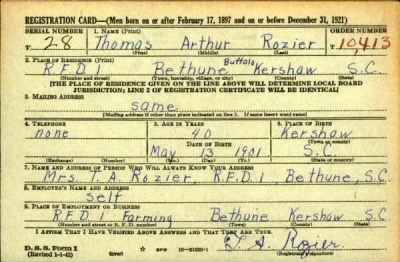 REGISTRATION CARD—(Men born on or after February 17, 1897 and on or before December 31, 1921)
SERIAL NUMBER 1. NAME (Print) ORDER NUMBER
T 28 Thomas Arthur Rozier T 10413
(First) (Middle) (Last)
2. PLACE OF RESIDENCE (Print) Buffalo
R.F.D. 1 Bethune Kershaw S.C.
(Number and street) (Town, township, village, or city) (County) (State)
[THE PLACE OF RESIDENCE GIVEN ON THE LINE ABOVE WILL DETERMINE LOCAL BOARD
JURISDICTION; LINE 2 OF REGISTRATION CERTIFICATE WILL BE IDENTICAL]
3. MAILING ADDRESS
same
[Mailing address if other than place indicated on line 2. If same insert word same]
4. TELEPHONE 5. AGE IN YEARS 6. PLACE OF BIRTH
none 40 Kershaw
DATE OF BIRTH (Town or county)
May 13 1901 S.C.
(Exchange) (Number) (Mo.) (Day) (Yr.) (State or country)
7. NAME AND ADDRESS OF PERSON WHO WILL ALWAYS KNOW YOUR ADDRESS
Mrs. T.A. Rozier, R.F.D. 1 Bethune, S.C.
8. EMPLOYER'S NAME AND ADDRESS
Self
9. PLACE OF EMPLOYMENT OR BUSINESS
R.F.D. 1 Farming Bethune Kershaw S.C.
(Number and street or R. F. D. number) (Town) (County) (State)
I AFFIRM THAT I HAVE VERIFIED ABOVE ANSWERS AND THAT THEY ARE TRUE.
D. S. S. Form 1
(Revised 1-1-42) T. A. Rozier